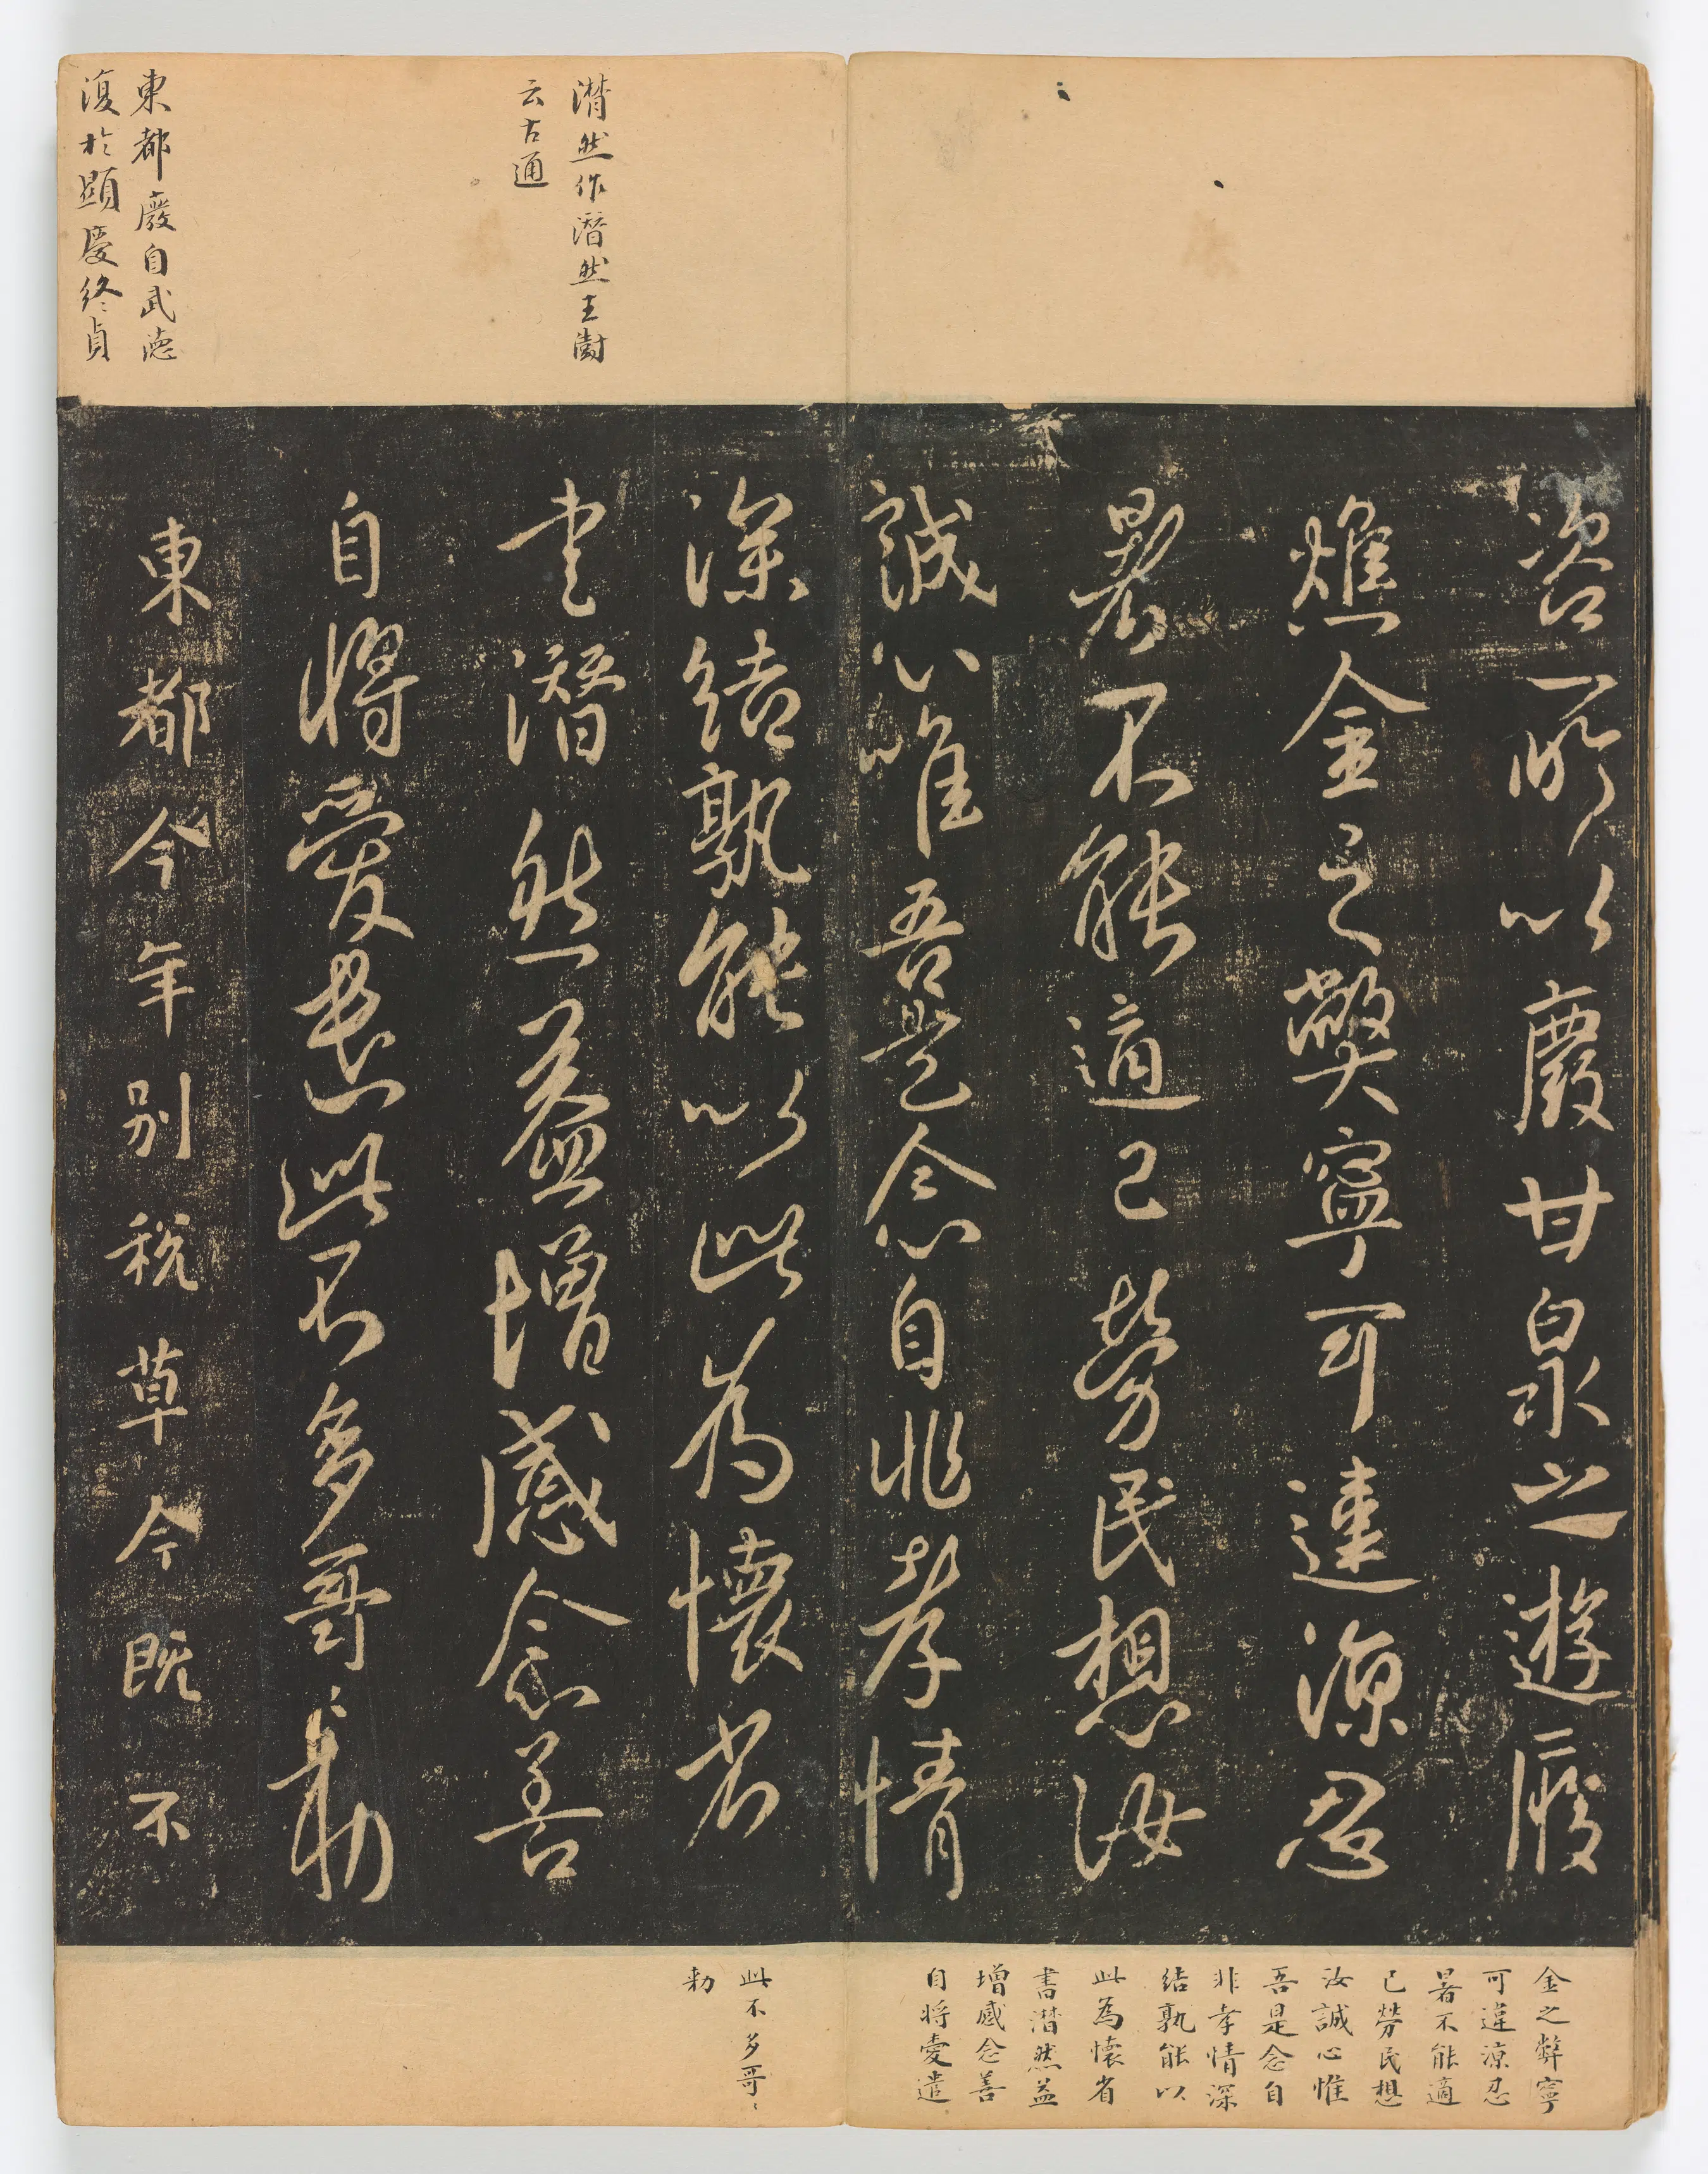 潸然作潛然王澍
云古通
東都廢自武德
復於顯慶終貞
咨所以廢甘泉之遊履
燋金之弊寧可違涼忍
暑不能適己勞民想汝
誠心唯吾是念自非孝情
深結孰能以此為懷省
書潛然益增感念善
自將愛遣此不多哥哥勅
東都今年別稅草今既不
金之弊寧
可違涼忍
暑不能適
己勞民想
汝誠心惟
吾是念自
非孝情深
結孰能以
此為懷省
書潛然益
增感念善
自將愛遣
此不多哥〻
勅